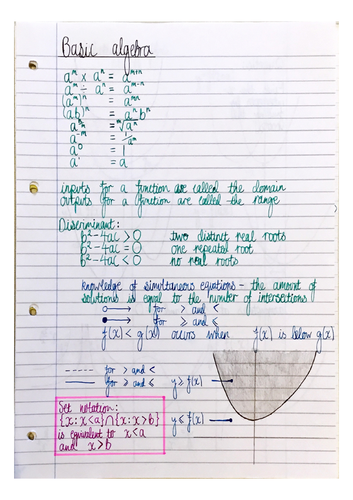 Basic algebra
aᵐ × aⁿ = aᵐ⁺ⁿ
aᵐ ÷ aⁿ = aᵐ⁻ⁿ
(aᵐ)ⁿ = aᵐⁿ
(ab)ⁿ = aⁿbⁿ
= ᵐ√aⁿ
a⁻ᵐ = 1/aᵐ
a⁰ = 1
a¹ = a
inputs for a function are called the domain
outputs for a function are called the range
Discriminant:
b²-4ac > 0 two distinct real roots
b²-4ac = 0 one repeated root
b²-4ac < 0 no real roots
Knowledge of simultaneous equations - the amount of
solutions is equal to the number of intersections
for > and <
for ≥ and ≤
f(x) < g(x) occurs when f(x) is below g(x)
for > and <
for ≥ and ≤ y ≥ f(x)
Set notation:
{x: x<a} ∩ {x: x>b} y ≤ f(x)
is equivalent to x<a
and x>b